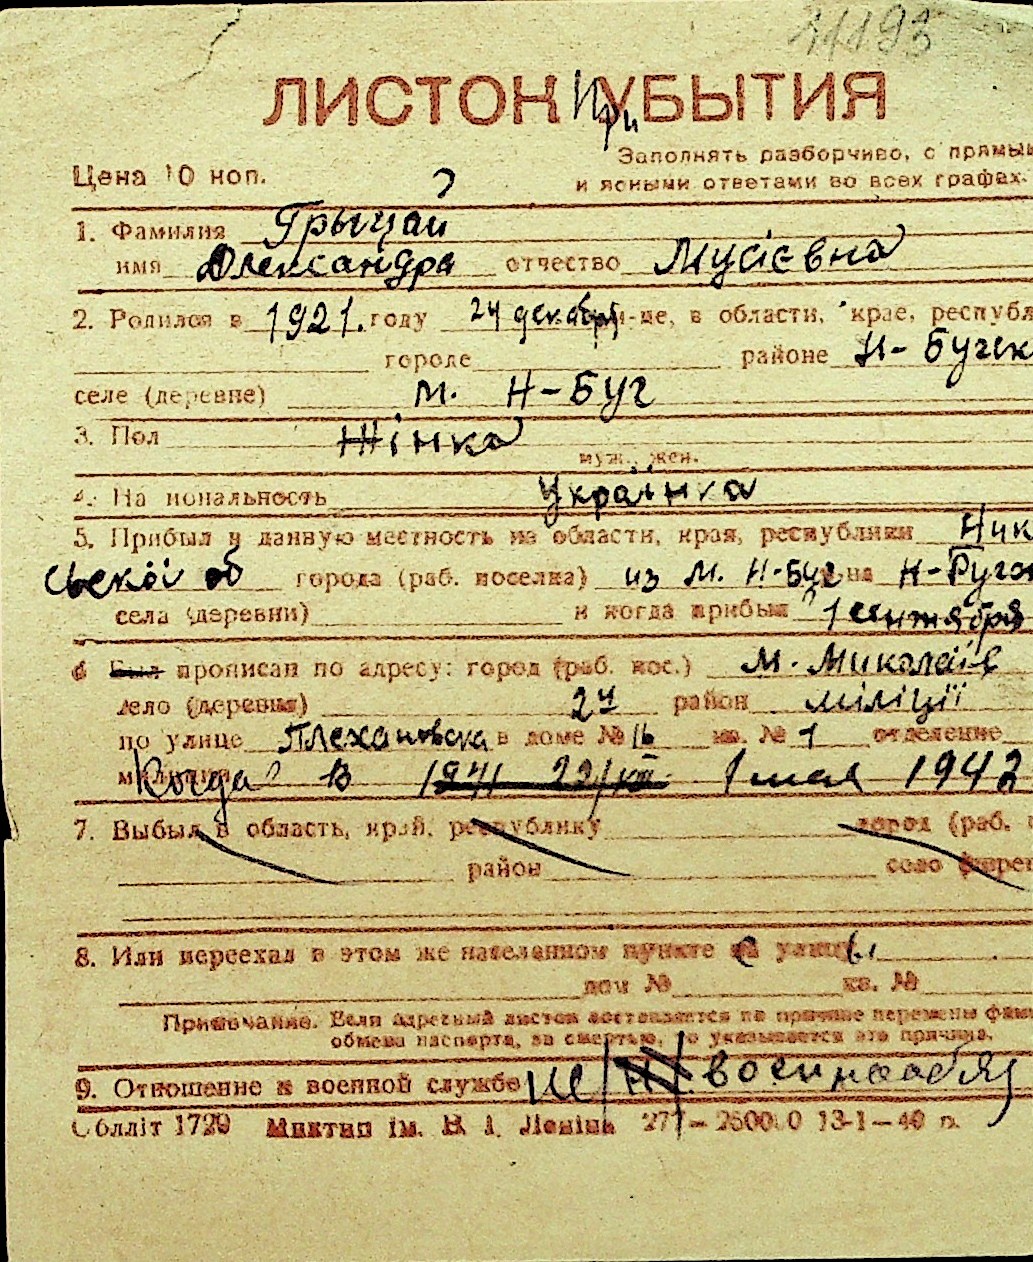 11193
ЛИСТОК При УБЫТИЯ
Заполнять разборчиво, с прямыми
Цена 10 коп.
и ясными ответами во всех графах.
1. Фамилия Грыцай
имя Олександра отчество Мусіевна
2. Родился в 1921. году 24 декабря -це, в области, крае, республ
городе районе Н-Бугск
селе (деревне) м. Н-Буг
3. Пол Жінка
муж., жен.
4. Национальность Украінка
5. Прибыл в данную местность из области, края, республики Ник
ськой об города (раб. поселка) из м. Н-Буг на Н-Буго
села (деревни) и когда прибыл 1 сентября
6 Был прописан по адресу: город (раб. пос.) м. Миколаїв
село (деревня) 24 район міліції
по улице Плехановска в доме № 16 кв. № 1 отделение
милиции Когда? В 1941 22/XII 1 мая 1942
7. Выбыл в область, край, республику город (раб.
район село (дерев
8. Или переехал в этом же населенном пункте с улицы
дом № кв. №
Примечание. Если адресный листок составляется по причине перемены фам
обмена паспорта, за смертью, то указывается эта причина.
9. Отношение к военной службе не военнообяз
Облліт 1729 Миктип ім. В. І. Леніна 277—25000 13-1-40 г.